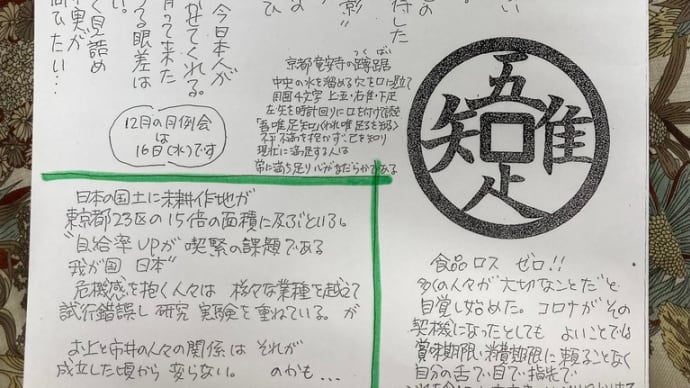 今日本人が
せてくれる。
って来た
る眼差は
見詰め
実が
問ひたい…
の
得した
影”
12月の月例会
は
16日(水)です
京都竜安寺の蹲踞
つくばい
中央の水を溜める穴を口に見立て
周囲4文字 上五・右隹・下疋
左矢を時計回りに口を付けて読む
「吾唯足知」(われ唯足るを知る)
不満を抱かず、己を知り
現状に満足する人は
常に満ち足り心がなだらかである
五
隹
疋
矢
日本の国土に未耕作地が
東京都23区の15倍の面積に及ぶという。
“自給率UPが喫緊の課題である
我が国 日本”
危機感を抱く人々は 様々な業種を越えて
試行錯誤し 研究 実験を重ねている。が
お上と市井の人々の関係は それが
成立した頃から変らない。のかも…
食品ロス ゼロ!!
多くの人々が“大切なことだ”と
自覚し始めた。コロナがその
契機になったとしても よいことでは
賞味期限・消費期限に頼ることなく
自分の舌で・目で・指先で